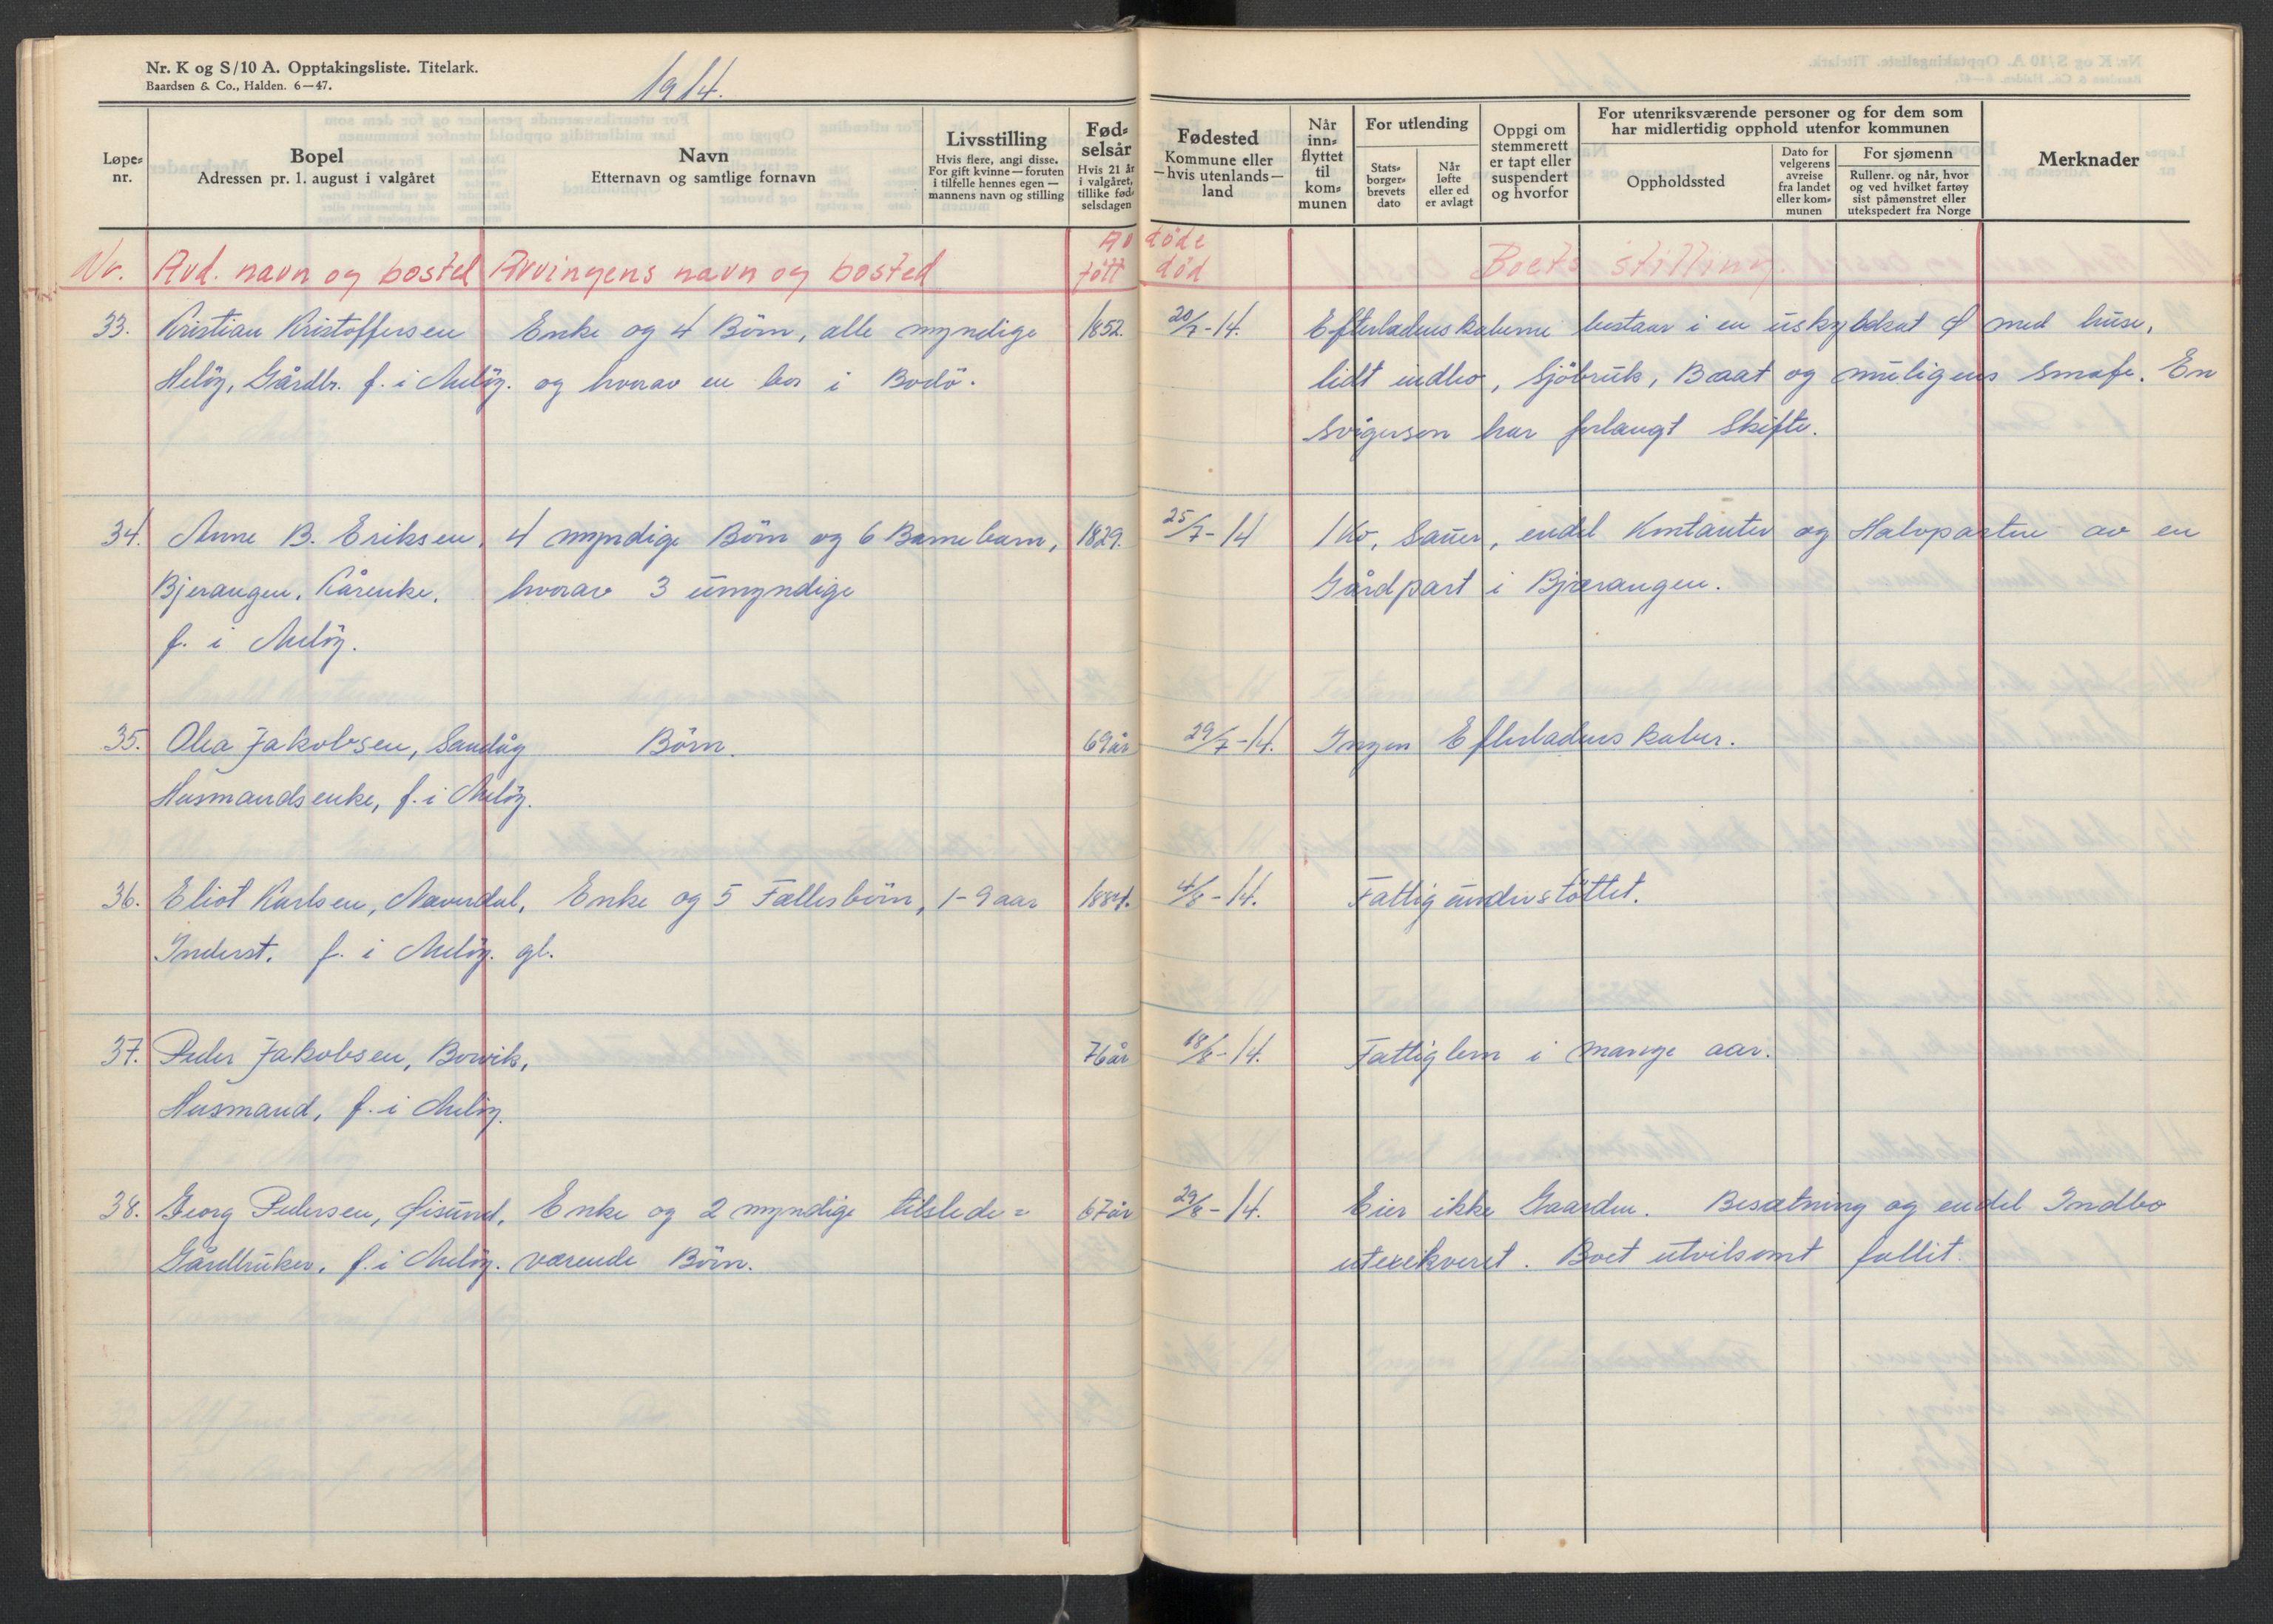 Nr. K og S/10 A. Opptakingsliste. Titelark.
Baardsen & Co., Halden. 6—47.
1914.
Løpe-nr.
Bopel
Adressen pr. 1. august i valgåret
Navn
Etternavn og samtlige fornavn
Livsstilling
Hvis flere, angi disse.
For gift kvinne — foruten
i tilfelle hennes egen —
mannens navn og stilling
Fød-
selsår
Hvis 21 år
i valgåret,
tillike fød-
selsdagen
Fødested
Kommune eller
—hvis utenlands—
land
Når
inn-
flyttet
til
kom-
munen
For utlending
Stats-
borger-
brevets
dato
Når
løfte
eller ed
er avlagt
Oppgi om
stemmerett
er tapt eller
suspendert
og hvorfor
For utenriksværende personer og for dem som
har midlertidig opphold utenfor kommunen
Oppholdssted
Dato for
velgerens
avreise
fra landet
eller kom-
munen
For sjømenn
Rullenr. og når, hvor
og ved hvilket fartøy
sist påmønstret eller
utekspedert fra Norge
Merknader
Av døde
Nr. Avd. navn og bosted Arvingens navn og bosted født død Boets stilling.
33. Kristian Kristoffersen Enke og 4 Börn, alle myndige 1852. 20/7-14. Efterladenskaberne bestaar i en uskyldsat Ø med huse,
Melöy, Gårdbr. f. i Melöy. og hvorav en bor i Bodö. lidt indbo, Sjöbruk, Baat og muligens Smafe. En
Svigersøn har forlangt Skifte.
34. Anne B. Eriksen, 4 myndige Börn og 6 Barnebarn, 1829. 25/7-14 1 Ko, Sauer, endel Kontanter og Halvparten av en
Bjerangen. Kårenke. hvorav 3 umyndige Gårdpart i Bjærangen.
f. i Melöy.
35. Olea Jakobsen, Sandåg Börn. 69 år 29/7-14. Ingen Efterladenskaber.
Husmandsenke, f. i Melöy.
36. Eliot Karlsen, Næverdal, Enke og 5 Fællesbörn, 1-9 aar 1884. 4/8-14. Fattigunderstöttet.
Inderst. f. i Melöy. gl.
37. Peder Jakobsen, Borvik, 76 år 18/8-14. Fattiglem i mange aar.
Husmand, f. i Melöy.
38. Georg Pedersen, Øisund, Enke og 2 myndige tilstede= 67 år 29/8-14. Eier ikke Gaarden. Besætning og endel Indbo
Gårdbruker. f. i Melöy. værende Börn. utexekveret. Boet utvilsomt fallit.